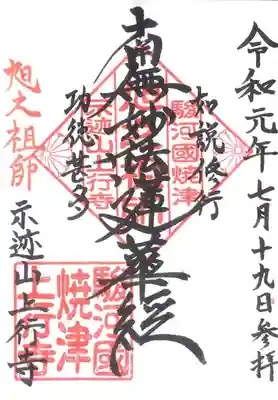 令和元年七月十九日参拝
駿河國焼津
如説修行
南無妙法蓮華経
功徳甚多
示迹山上行寺
旭大祖師
示迹山上行寺
駿河國
焼津
上行寺